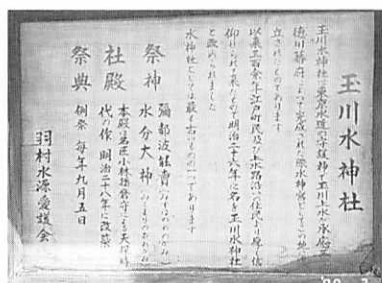 玉川水神社
玉川水神社は東京水道の守護神で玉川上水が承應三年
徳川幕府によって完成された際水神宮としてこの地に建
立されたものであります
以来三百余年江戸町民及び上水路沿い住民より厚く信
仰せられて来たもので明治二十六年に名を玉川水神社
と改められました
水神社としては最も古いものの一つであります
祭神 彌都波能賣神(みづはのめのかみ)
水分大神(みくまりのおおかみ)
社殿 本殿は名匠小林播磨
代の作 明治二十八年に改築
祭典 例祭 毎年九月五日
羽村水源愛護会